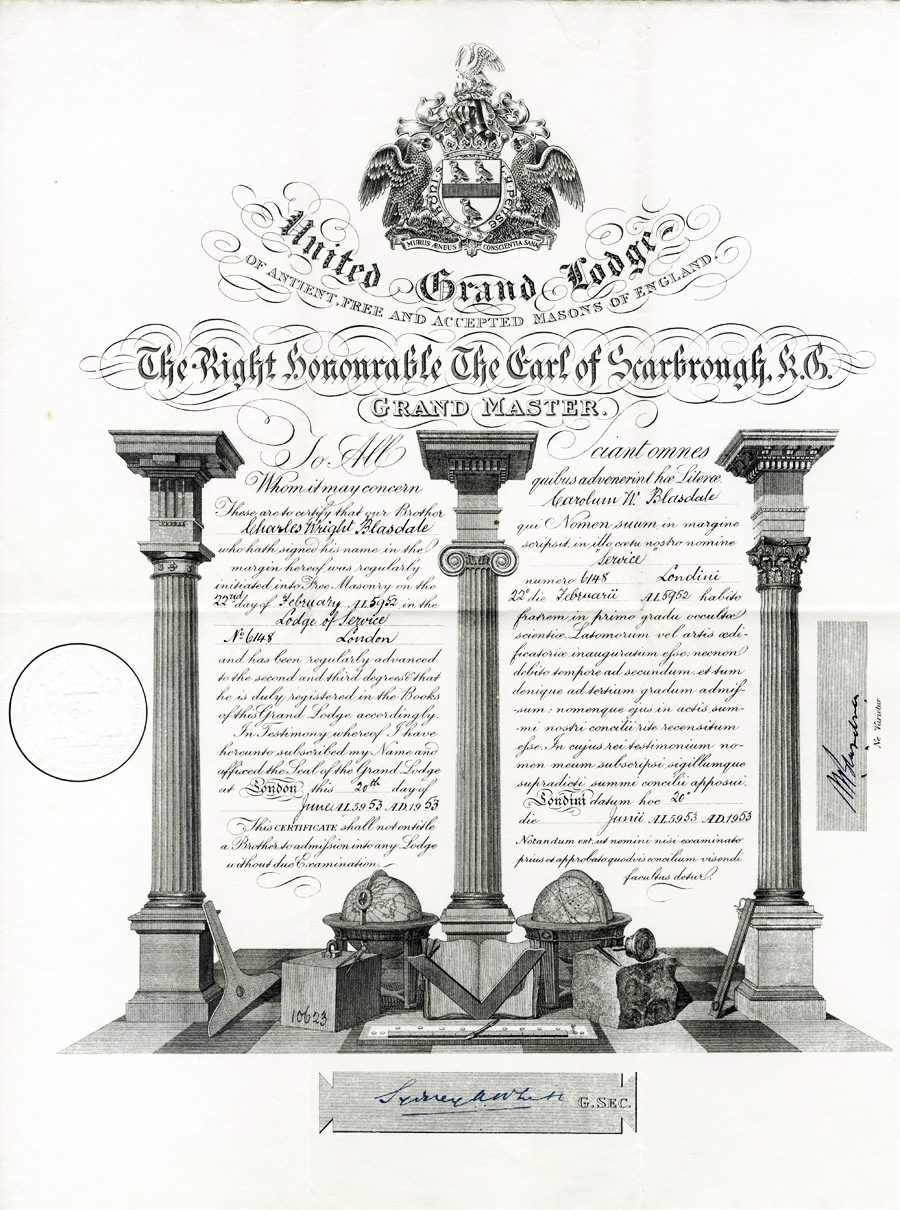 Honi soit
y Pense
MURUS ÆNEUS CONSCIENTIA SANA
United Grand Lodge
OF ANTIENT, FREE AND ACCEPTED MASONS OF ENGLAND.
The Right Honourable The Earl of Scarbrough, K.G.
GRAND MASTER.
To All
Whom it may concern
These are to certify that our Brother
Charles Wright Blasdale
who hath signed his name in the
margin hereof was regularly
initiated into Free Masonry on the
22nd day of February AL5952 in the
Lodge of Service
No 6148 London
and has been regularly advanced
to the second and third degrees & that
he is duly registered in the Books
of this Grand Lodge accordingly.
In Testimony whereof I have
hereunto subscribed my Name and
affixed the Seal of the Grand Lodge
at London this 20th day of
June AL5953 AD.1953
This CERTIFICATE shall not entitle
a Brother to admission into any Lodge
without due Examination.
Sciant omnes
quibus advenerint hæ Literæ
Carolum W. Blasdale
qui Nomen suum in margine
scripsit, in illo cœtu nostro nomine
"Service"
numero 6148 Londini
22o die Februarii AL5952 habito
fratrem in primo gradu occultæ
scientiæ Latomorum vel artis ædi-
ficatoriæ inauguratum esse: necnon
debito tempore ad secundum, et tum
denique ad tertium gradum admis-
sum: nomenque ejus in actis sum-
mi nostri concilii rite recensitum
esse. In cujus rei testimonium no-
men meum subscripsi sigillumque
supradicti summi concilii apposui.
Londini datum hoc 20o
die Junii AL5953 AD.1953
Notandum est, ut nemini nisi examinato
prius et approbato quodvis concilium visendi
facultas detur.
Ne Varietur
10623
Sydney A White G. SEC.